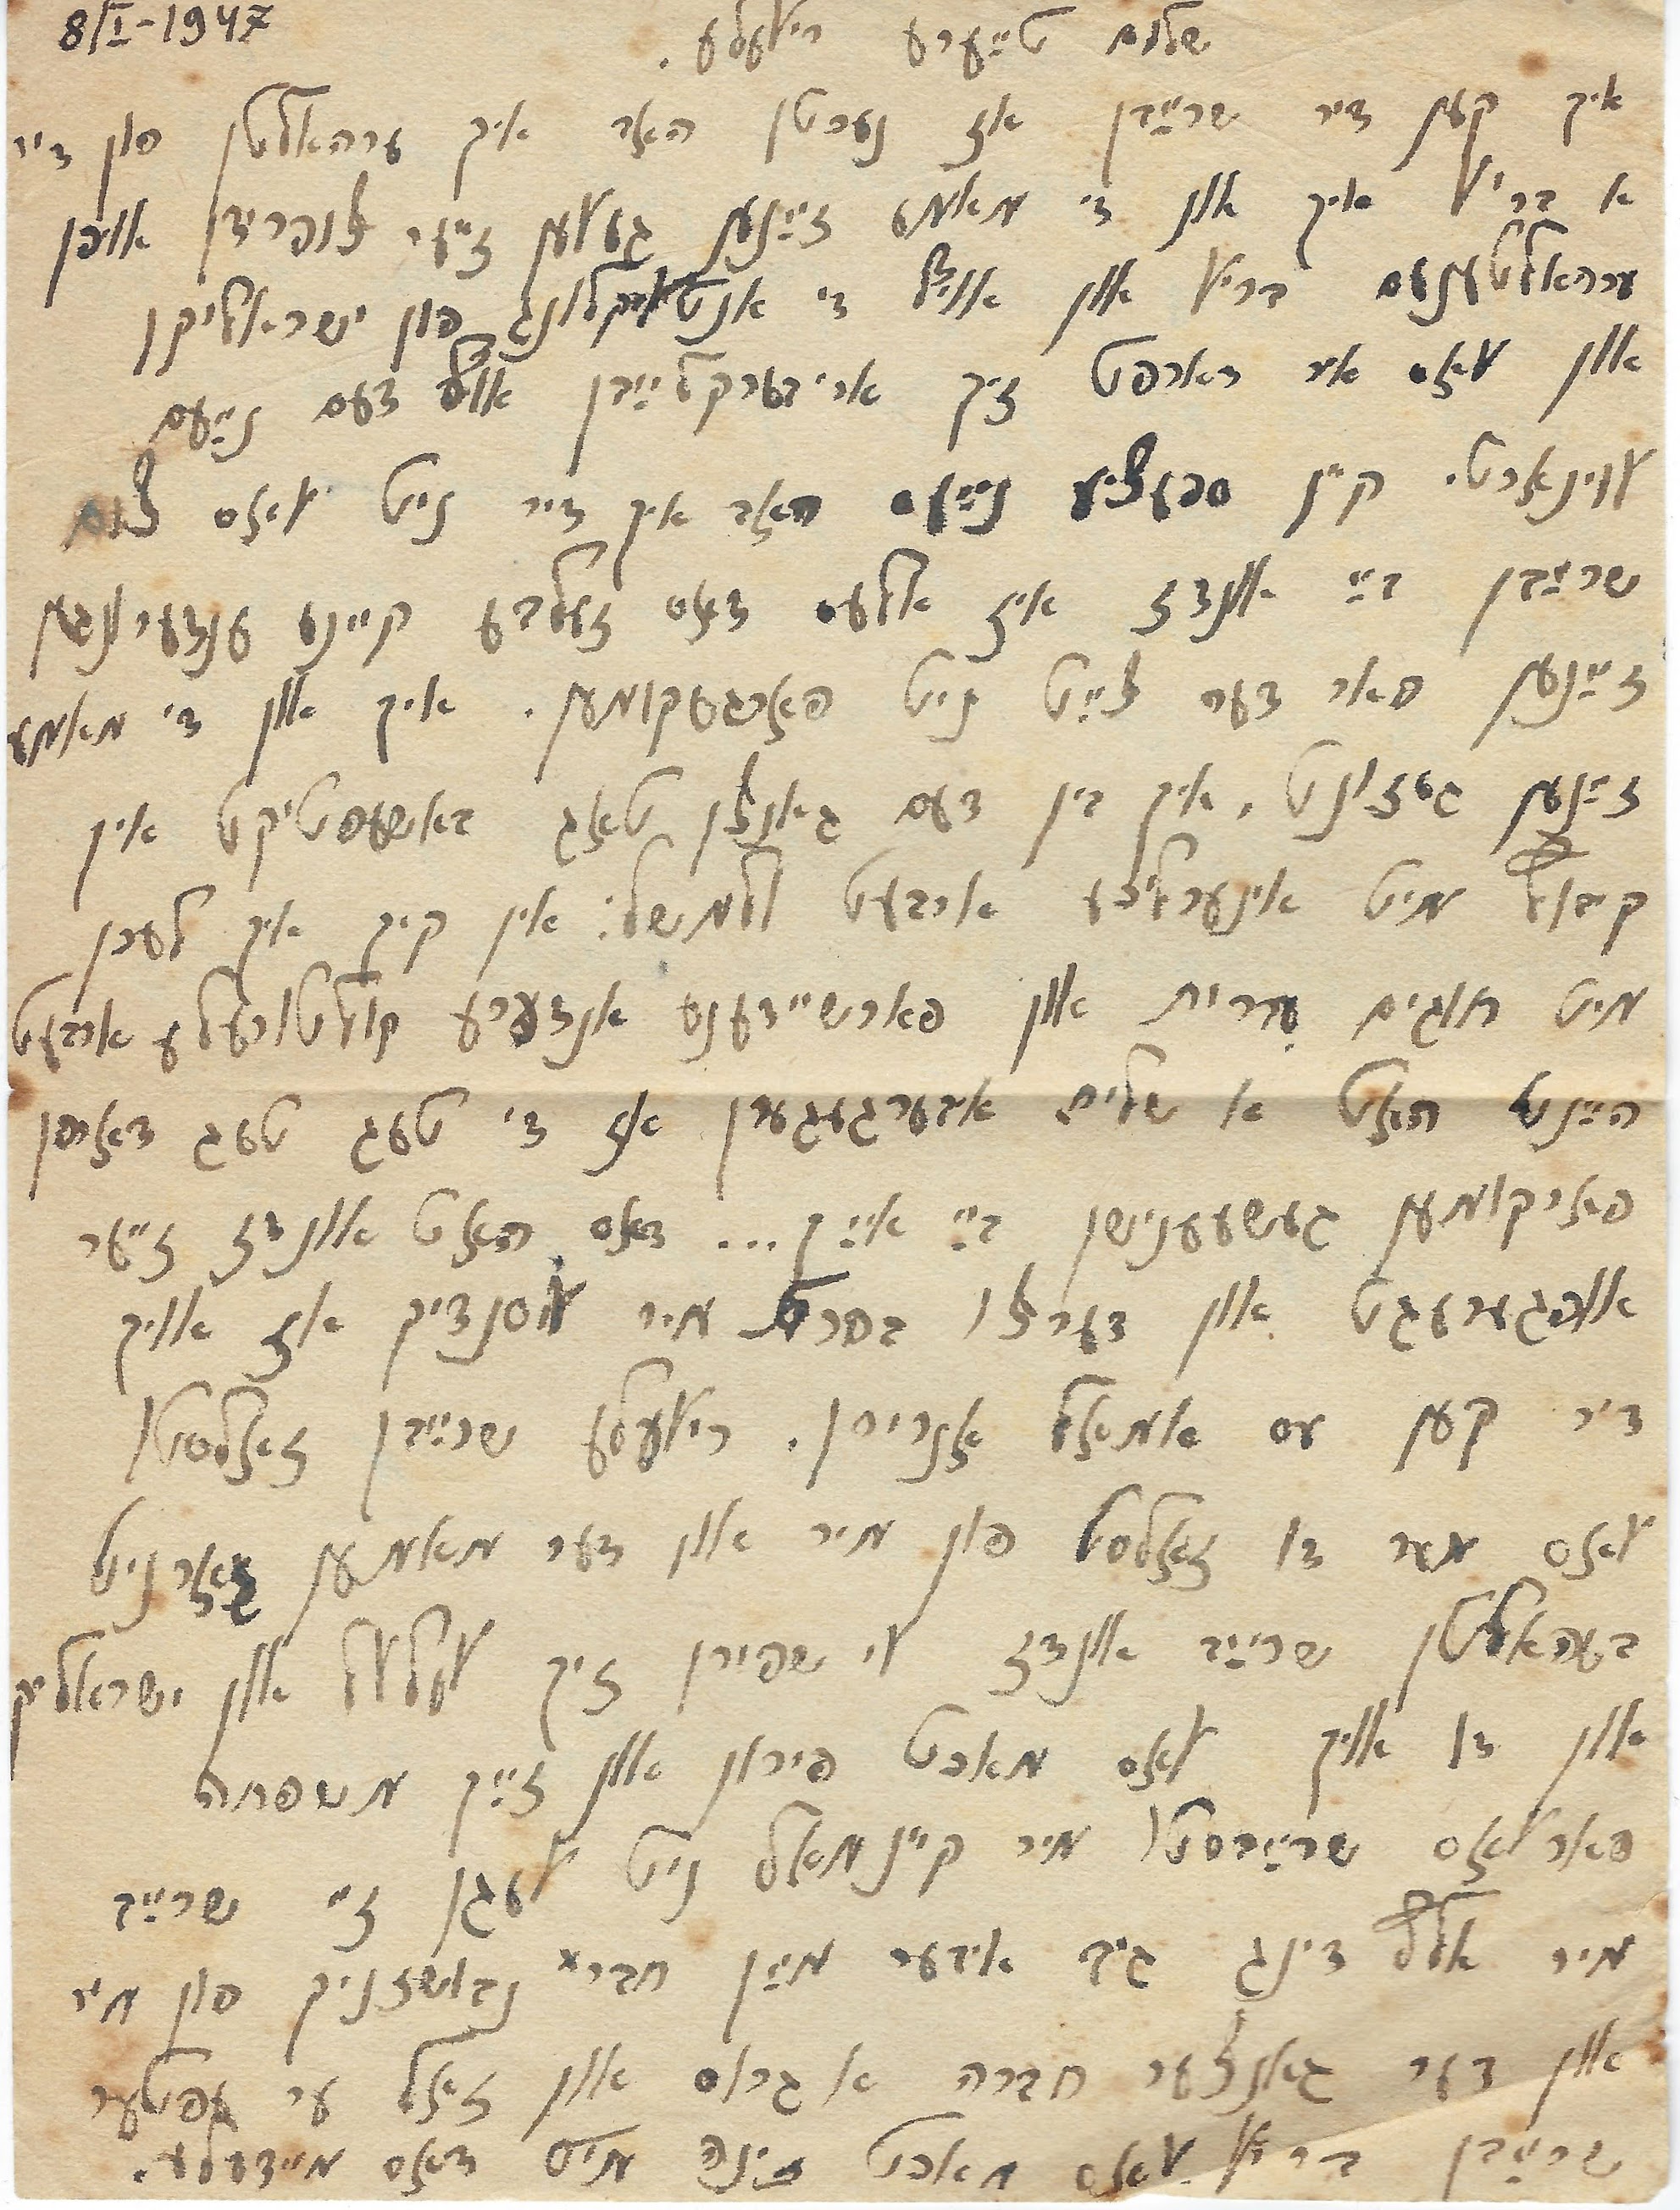 8/I-1947
שלום טייערע ריוועלע.
איך קען דיר שרייבן אז נעכטן האב איך ערהאלטן פון דיר
א בריוו איך און די מאמע זיינען געווען זייער צופרידן אויפן
ערהאלטענעם בריוו און אויף די אנטוויקלונג פון ישראליקן
און וואס איר דארפט זיך אריבערקלייבן אויף דעם נייעם
וווינארט. קיין ספעציע נייעס האב איך דיר ניט וואס צום
שרייבן ביי אונדז איז אלעס דאס זעלבע קיינע ענדערונגען
זיינען פאר דער צייט ניט פארגעקומען. איך און די מאמע
זיינען געזונט. איך בין דעם גאנצן טאג באשעפטיקט אין
קיבוץ מיט אינערלעכע ארבעט למשל: אין קיך איך לערן
מיט חוגים עברית און פארשיידענע אנדערע קולטורעלע ארבעט
היינט האט א שליח איבערגעגעבן אז די טעג טעג דארפן
פארקומען געשעענישן ביי אייך... דאס האט אונדז זייער
אויפגערעגט און דערצו בפרט מיר וויסנדיק אז אויך
דיר קען עס אמאל אנרירן. ריוועלע שרייבן זאלסטו
וואס מער דו זאלסט פון מיר און דער מאמען גארניט
בעהאלטן שרייב אונדז ווי שפירן זיך וועלוול און ישראליק
און דו אויך וואס מאכט פירע און זיין משפחה
פארוואס שרייבסטו מיר קיינמאל ניט וועגן זיי שרייב
מיר אלץ דינג גיב איבער מיין חבר נבוזשניק פון מיר
און דער גאנצער חברה א גרוס און זאל ער עפטער
שרייבן בריוו וואס מאכט מיט דאס מיידעלע.